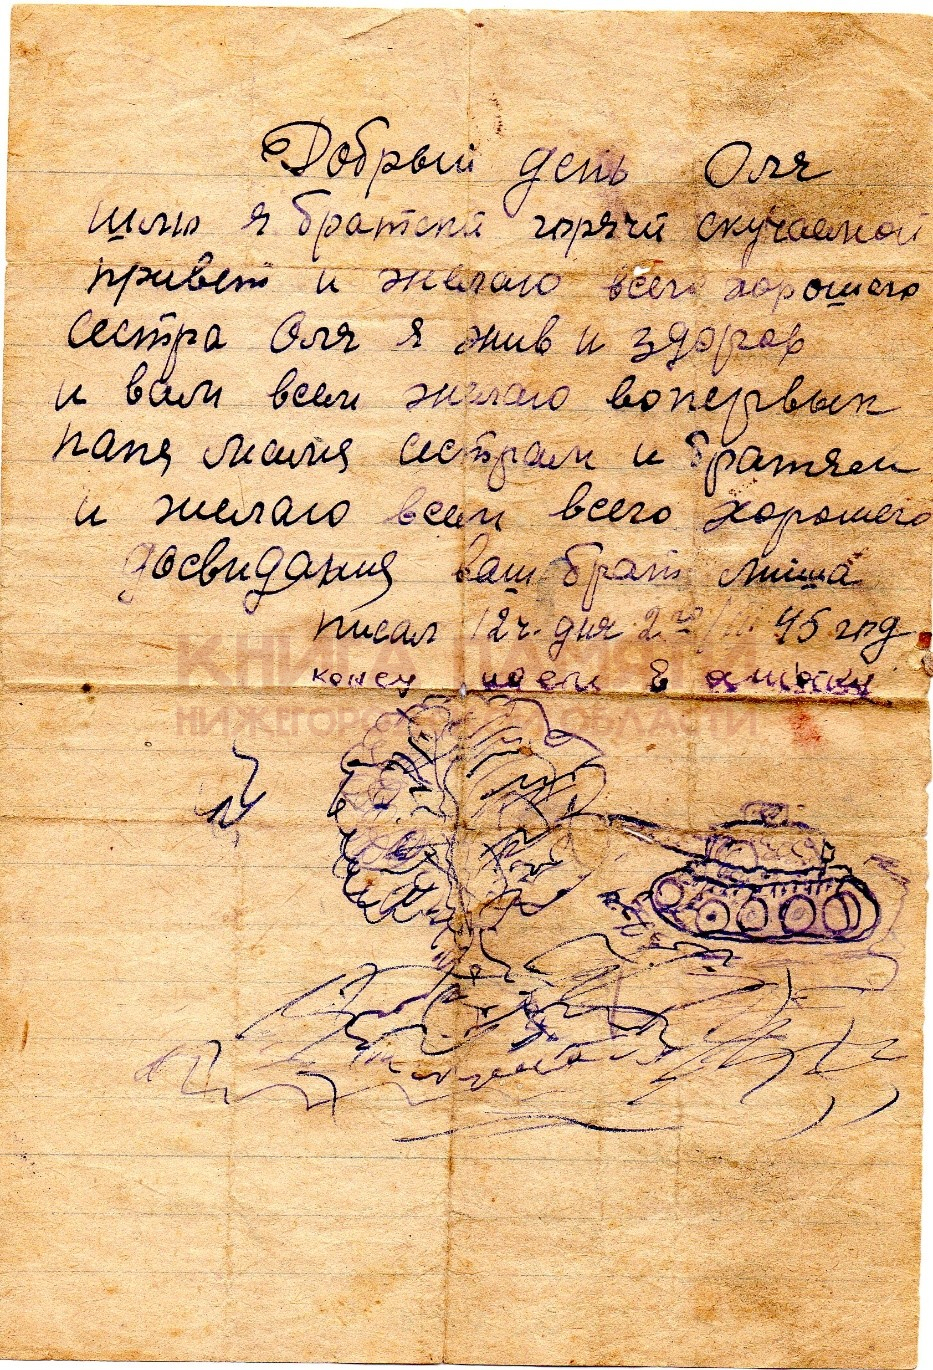 Добрый день Оля
шлю я братский горячий скучаемой
привет и желаю всего хорошего
сестра Оля я жив и здоров
и вам всем желаю вопервых
папя маме сестрам и братям
и желаю всем всего хорошего
досвидания ваш брат миша
писал 12 ч. дня 2го 45 год
КНИГА ПАМЯТИ
конец идем в
НИЖЕГОРОДСКОЙ ОБЛАСТИ